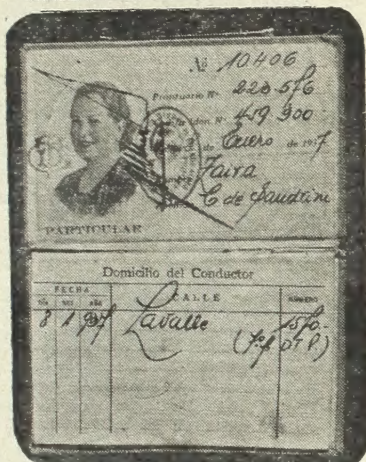 Nº 10406
Prontuario Nº 223.576
Iden. Nº 419.900
de Enero de 1937
Faira
C de Gaudtini
PARTICULAR
Domicilio del Conductor
FECHA CALLE NUMERO
DÍA MES AÑO
8 1 937 Lavalle 1570-